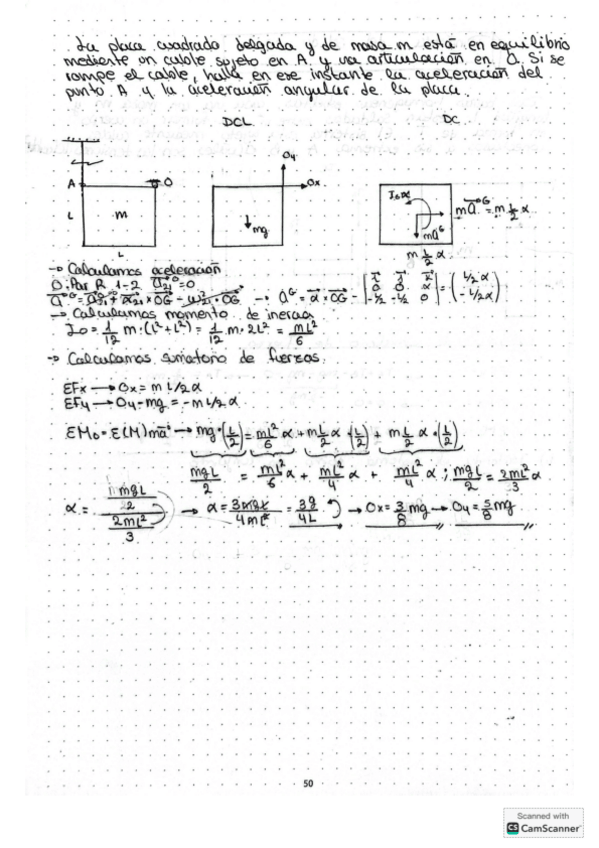 La placa cuadrada delgada y de masa m está en equilibrio
mediante un cable sujeto en A y una articulación en O. Si se
rompe el cable, halla en ese instante la aceleración del
punto A y la aceleración angular de la placa.
DCL DC
A O L m L
Oy Ox mg
I₀α maᴳ = m L/2 α
maᴳ
m L/2 α
→ Calculamos aceleración
O: Par R 1-2 a₂₁ᴼ = 0
→ aᴳ = α × OG = | i j k ; 0 0 α ; -L/2 -L/2 0 | = ( L/2 α ; -L/2 α )
→ Calculamos momento de inercia
I₀ = 1/12 m·(L²+L²) = 1/12 m·2L² = mL²/6
→ Calculamos sumatorio de fuerzas.
ΣFx → Ox = m L/2 α
ΣFy → Oy - mg = -m L/2 α
ΣM₀ = Σ(M)ma → mg·(L/2) = mL²/6 α + m L/2 α·(L/2) + m L/2 α·(L/2)
mgL/2 = mL²/6 α + mL²/4 α + mL²/4 α ; mgL/2 = 2mL²/3 α
α = (mgL/2)/(2mL²/3) → α = 3mgL/4mL² = 3g/4L → Ox = 3/8 mg → Oy = 5/8 mg
50
Scanned with
CS CamScanner